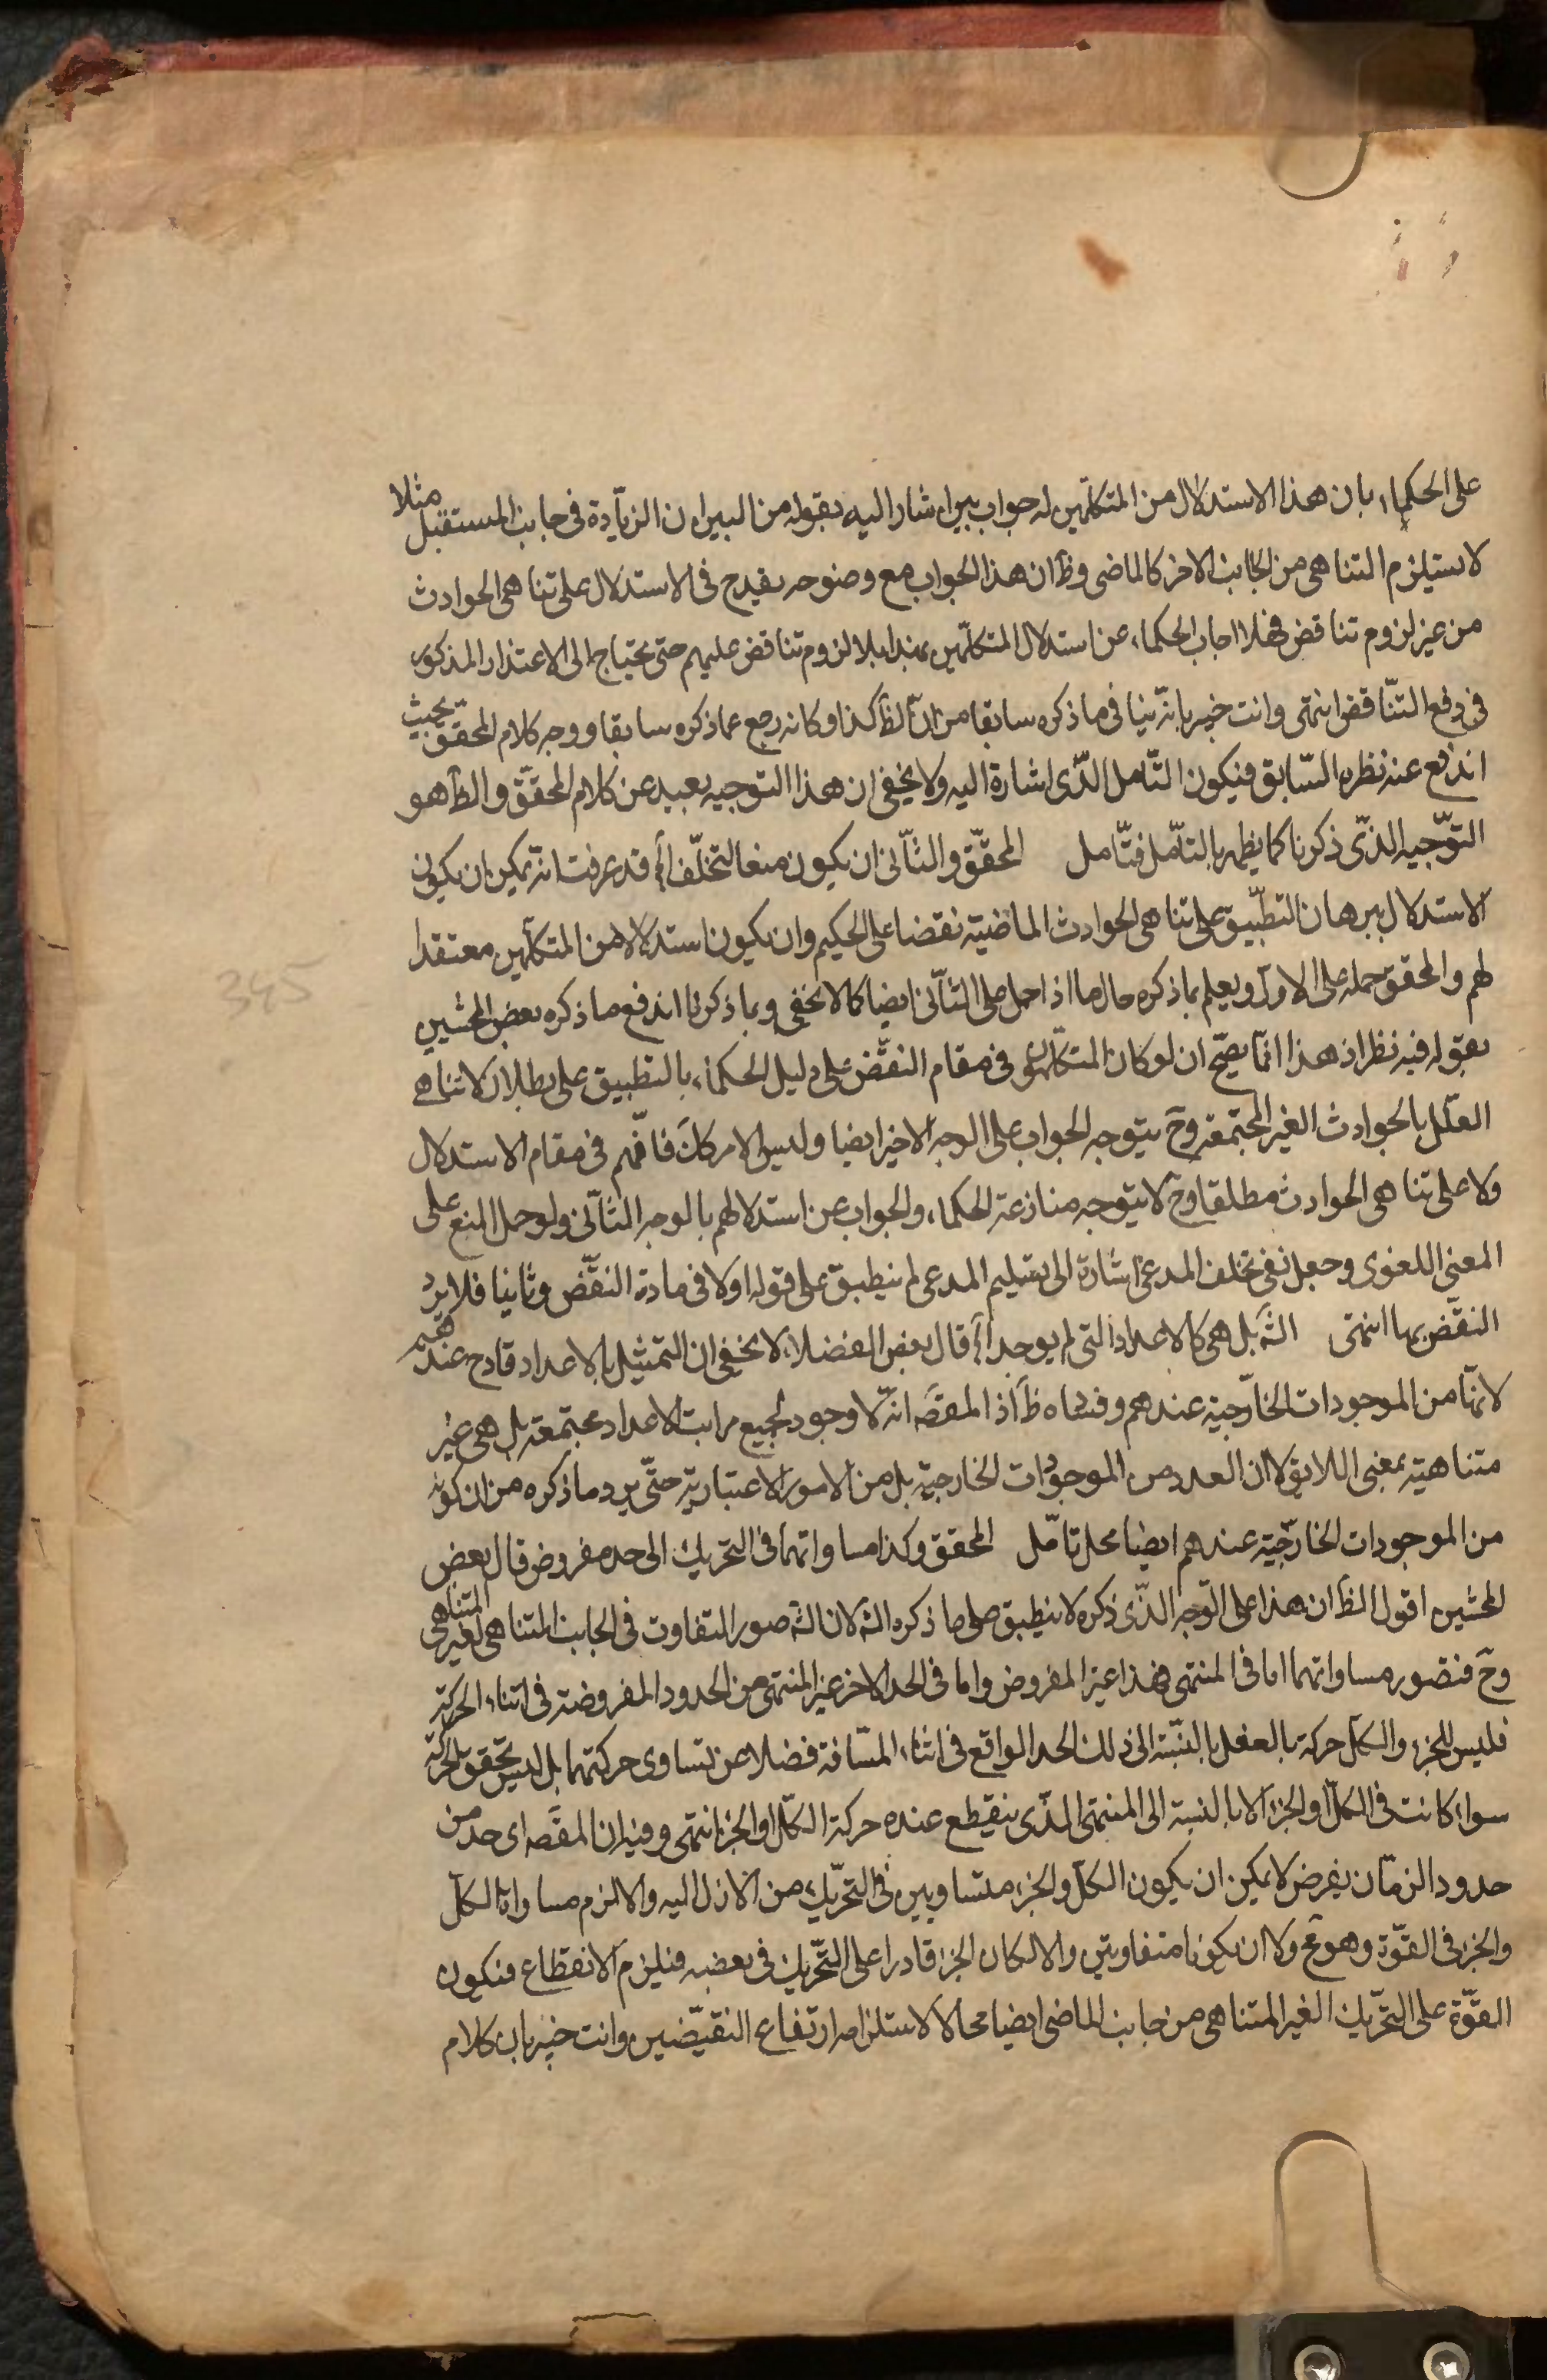 على الحكماء بان هذا الاستدلال من المتكلّمين له جواب بين اشار اليه بقوله من البين ان الزيّادة فى جانب المستقبل مثلا
لا يستلزم التناهى من الجانب الاخر كالماضى وظ ان هذا الجواب مع وضوحه يقدح فى الاستدلال على تناهى الحوادث
من غير لزوم تناقض فهلا اجاب الحكماء عن استدلال المتكلّمين بهذا بلا لزوم تناقض عليهم حتى يحتاج الى الاعتذار المذكور
فى دفع التنّاقض انتهى وانت خبير بانّه ينافى ما ذكره سابقا من انّ الظ كذا وكانه رجع عما ذكره سابقا ووجه كلام المحقق بحيث
اندفع عنه نظره السّابق فيكون التّامل الذّى اشارة اليه ولا يخفى ان هذا التوجيه بعيد عن كلام المحقّق والظ هو
التوّجيه الذّى ذكرنا كما يظهر بالتامّل فتّامل المحقّق والثّانى ان يكون منعا لتخلّف الخ قد عرفت انّه يمكن ان يكون
الاستدلال ببرهان التطبّيق على تناهى الحوادث الماضيّة نقضا على الحكيم وان يكون استدلالا من المتكلّمين معتقدا
لهم والمحقق حمله على الاول ويعلم بما ذكره حال ما اذا حمل على الثّانى ايضا كما لا يخفى وبما ذكرنا اندفع ما ذكره بعض المحشين
بقوله فيه نظر اذ هذا انمّا يصحّ ان لو كان المتكلّمون فى مقام النقّض على دليل الحكماء بالتطبيق على بطلان لا تناهى
العلّل بالحوادث الغير المجتمعة وح يتوجه الجواب على الوجه الاخير ايضا وليس الامر كك فافّهم فى مقام الاستدلال
ولا على تناهى الحوادث مطلقا وح لا يتوجه منازعة الحكماء والجواب عن استدلالهم بالوجه الثّانى ولو حمل المنع على
المعنى اللغوى وجعل نفى تخلف المدعى اشارة الى تسليم المدعى لم ينطبق على قوله اولا فى مادة النقّض وثانيا فلا يرد
النقّض بها انتهى الشّه بل هى كالاعداد التى لم يوجد الخ قال بعض الفضلاء لا يخفى ان التمثيل بالاعداد قادح عندهم
لانهّا من الموجودات الخارّجية عندهم وفساده ظ اذ المقصه انّه لا وجود لجميع مراتب الاعداد مجتمعة بل هى غير
متناهية بمعنى اللايقف لا ان العدد من الموجودات الخارجية بل من الامور الاعتبارية حتّى يرد ما ذكره من ان كونه
من الموجودات الخارّجية عندهم ايضا محل تامّل المحقق وكذا مساواتهما فى التحريك الى حد مفروض قال بعض
المحشين اقول الظ ان هذا على الوّجه الذّى ذكره لا ينطبق على ما ذكره الشه لان الشه صور التفاوت فى الجانب المتناهى لغير المتناهى
وح فتصور مساواتهما اما فى المنتهى فهذا غير المفروض واما فى الحد الاخر غير المنتهى من الحدود المفروضة فى اثناء الحركة
فليس للجزء والكل حركة بالفعل بالنسّبة الى ذلك الحد الواقع فى اثناء المسّافة فضلا عن تساوى حركتهما بل ليس تحقق الحركة
سواء كانت فى الكلّ او الجزء الا بالنسبة الى المنتهى الذّى ينقطع عنده حركة الكلّ او الجزء انتهى وفيه ان المقصه اى حد من
حدود الزمّان يفرض لا يمكن ان يكون الكلّ والجزء متساويين فى التحّريك من الازل اليه والا لزم مساواة الكلّ
والجزء فى القوّة وهو مح ولا ان يكونا متفاوتين والا لكان الجزء قادرا على التّحريك فى بعضه فيلزم الانقطاع فيكون
القوّة على التحّريك الغير المتناهى من جانب الماضى ايضا محالا لاستلزامه ارتفاع النقيّضين وانت خبير بان كلام
345